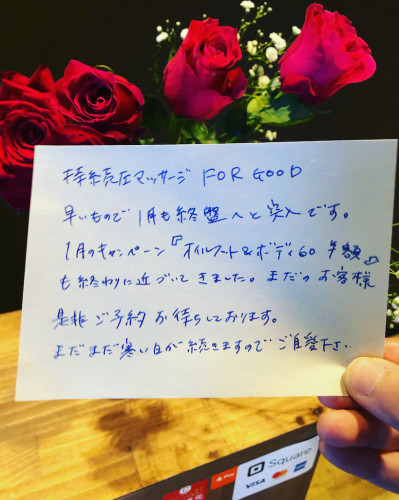 持続圧マッサージ FOR GOOD
早いもので1月も終盤へと突入です。
1月のキャンペーン『オイルフート&ボディ60 半額』
も終わりに近づいてきました。まだのお客様
是非ご予約お待ちしております。
まだまだ寒い日が続きますのでご自愛下さい
Square
Pay
VISA